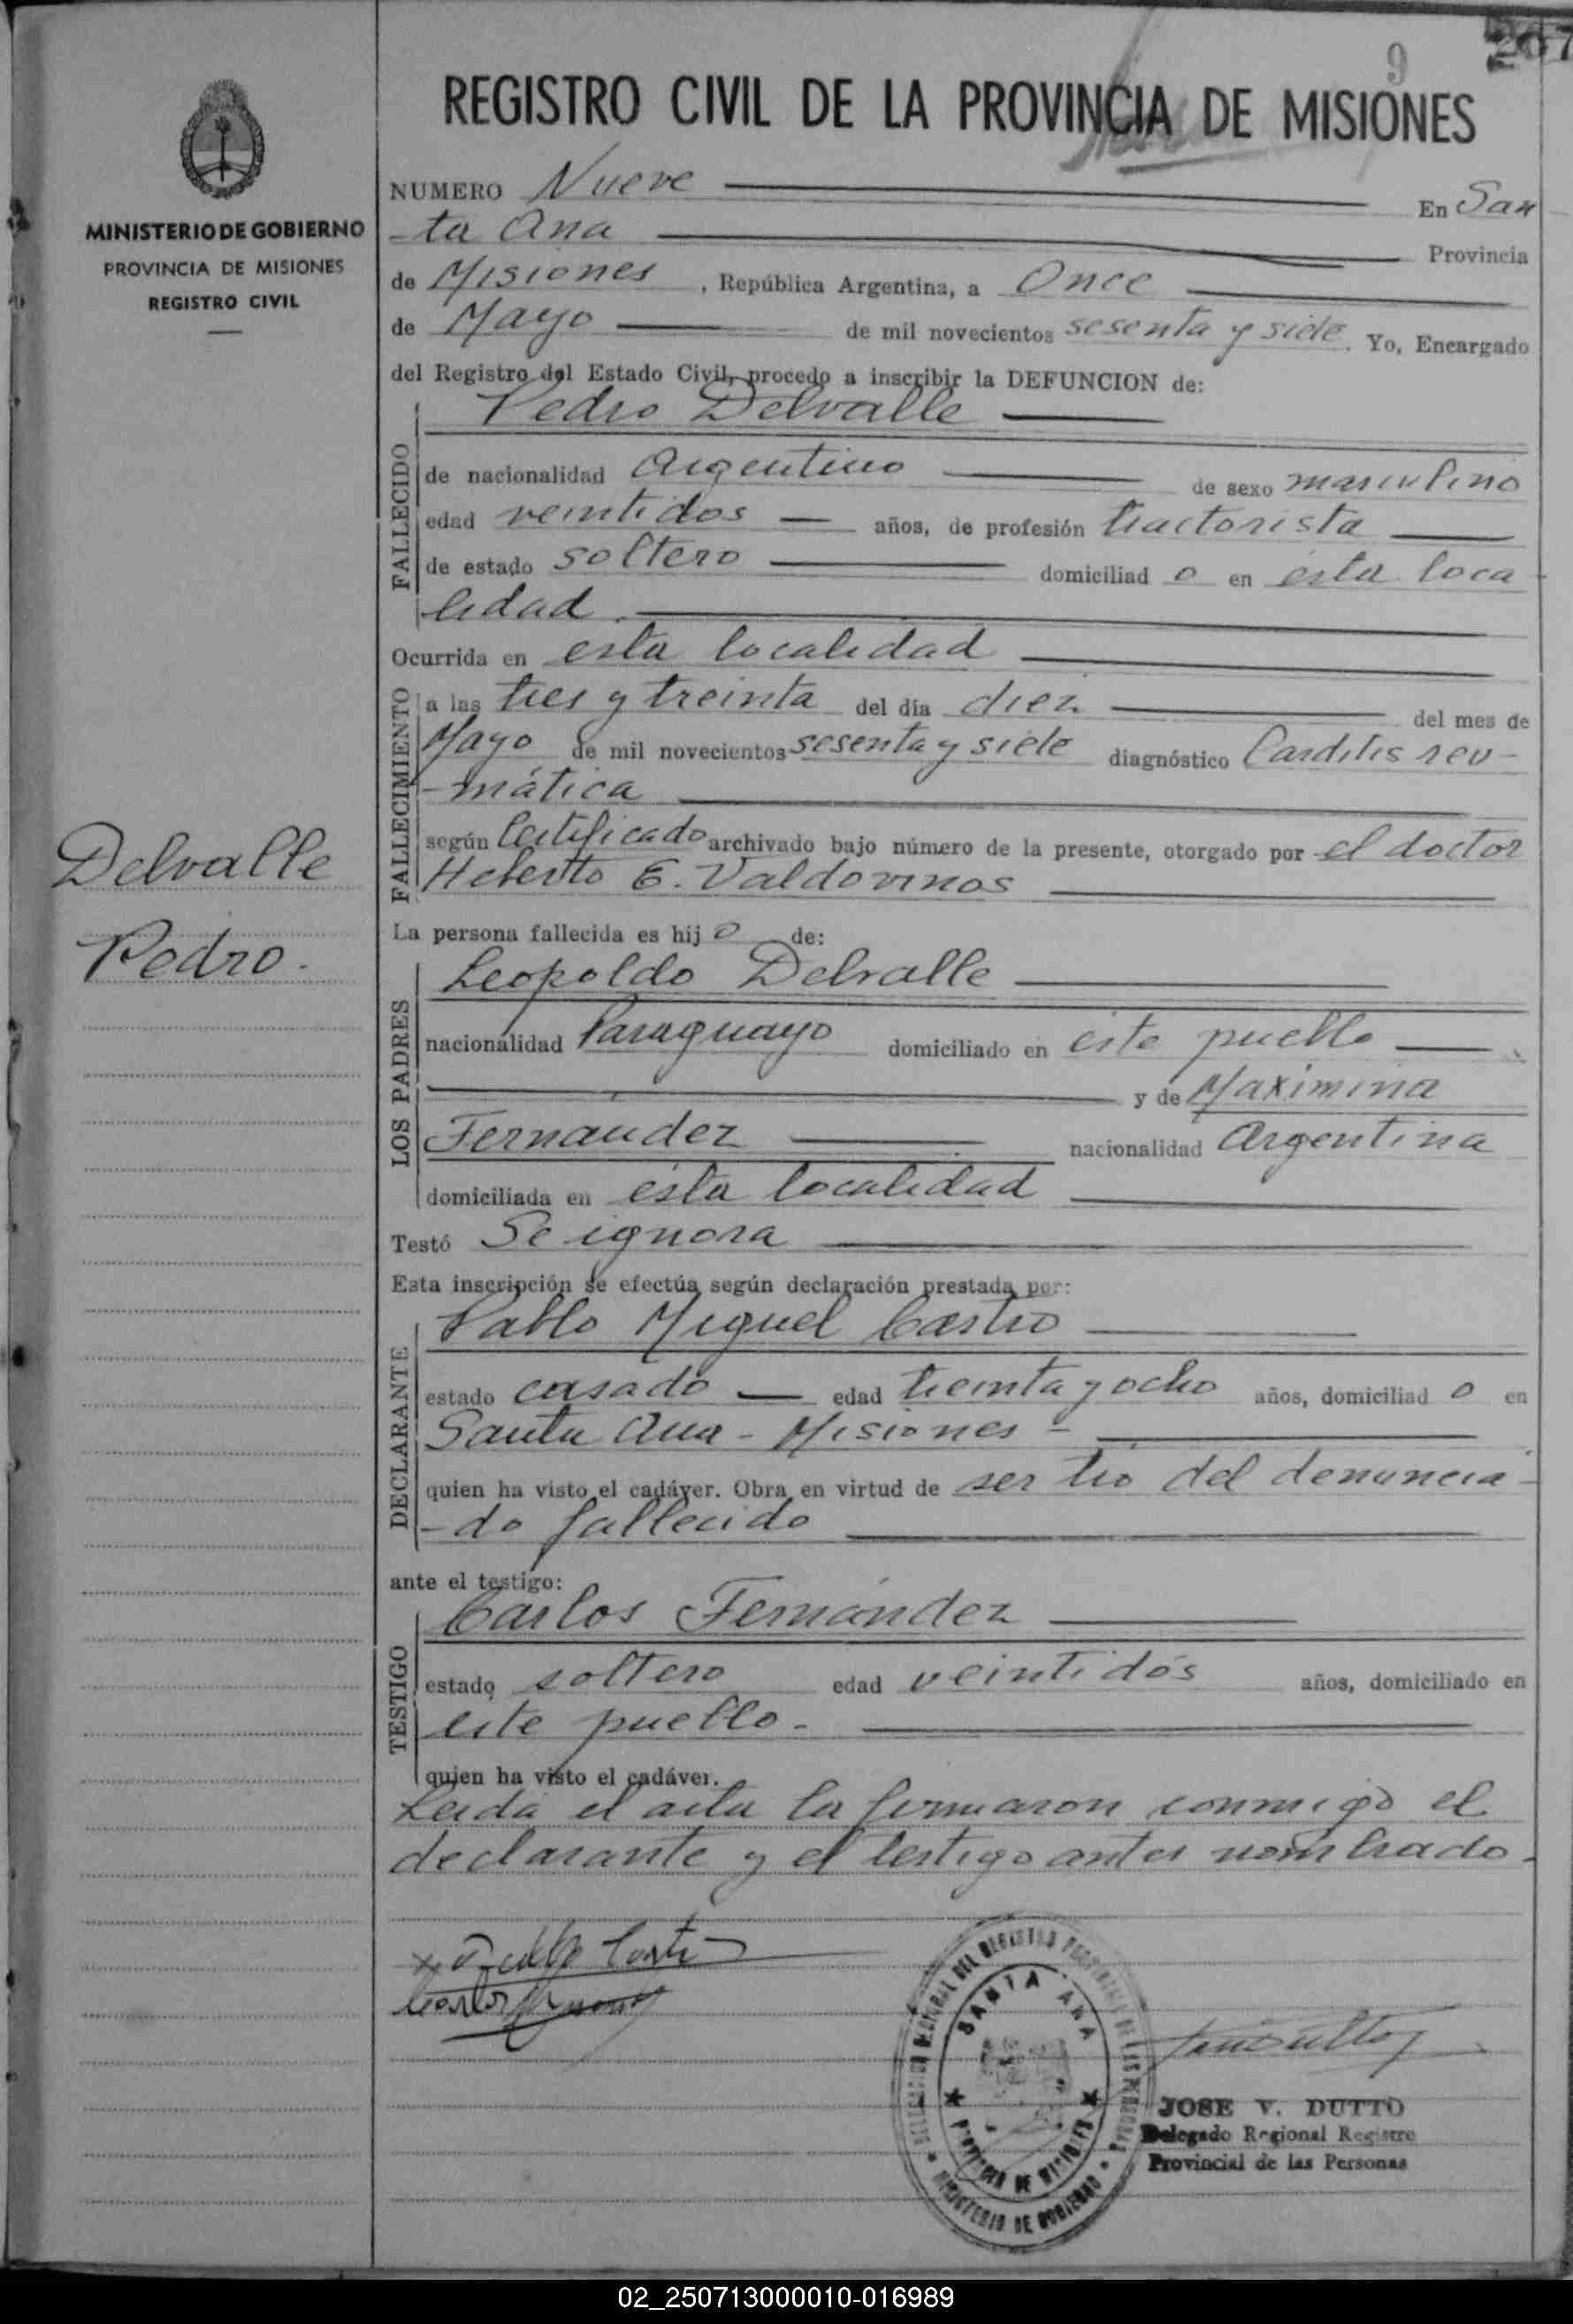 9
207
REGISTRO CIVIL DE LA PROVINCIA DE MISIONES
MINISTERIO DE GOBIERNO
PROVINCIA DE MISIONES
REGISTRO CIVIL
Delvalle
Pedro.
NUMERO Nueve En San
-ta Ana Provincia
de Misiones, República Argentina, a Once
de Mayo de mil novecientos sesenta y siete. Yo, Encargado
del Registro del Estado Civil, procedo a inscribir la DEFUNCION de:
FALLECIDO
Pedro Delvalle
de nacionalidad Argentino de sexo masculino
edad veintidos años, de profesión tractorista
de estado soltero domiciliad o en esta loca
lidad.
Ocurrida en esta localidad
FALLECIMIENTO
a las tres y treinta del día diez del mes de
Mayo de mil novecientos sesenta y siete diagnóstico Carditis reu-
-mática
según Certificado archivado bajo número de la presente, otorgado por el doctor
Heberto E. Valdovinos
La persona fallecida es hij o de:
LOS PADRES
Leopoldo Delvalle
nacionalidad Paraguayo domiciliado en este pueblo
y de Maximina
Fernandez nacionalidad Argentina
domiciliada en esta localidad
Testó Se ignora
Esta inscripción se efectúa según declaración prestada por:
DECLARANTE
Pablo Miguel Castro
estado casado edad treinta y ocho años, domiciliad o en
Santa Ana - Misiones -
quien ha visto el cadáver. Obra en virtud de ser tio del denuncia-
-do fallecido
ante el testigo:
TESTIGO
Carlos Fernández
estado soltero edad veintidós años, domiciliado en
este pueblo.
quien ha visto el cadáver.
Leida el acta la firmaron conmigo el
declarante y el testigo antes nombrado.
DELEGACION SECCIONAL DEL REGISTRO PROVINCIAL DE LAS PERSONAS
SANTA ANA
PROVINCIA DE MISIONES
MINISTERIO DE GOBIERNO
JOSE V. DUTTO
Delegado Regional Registro
Provincial de las Personas
02_250713000010-016989